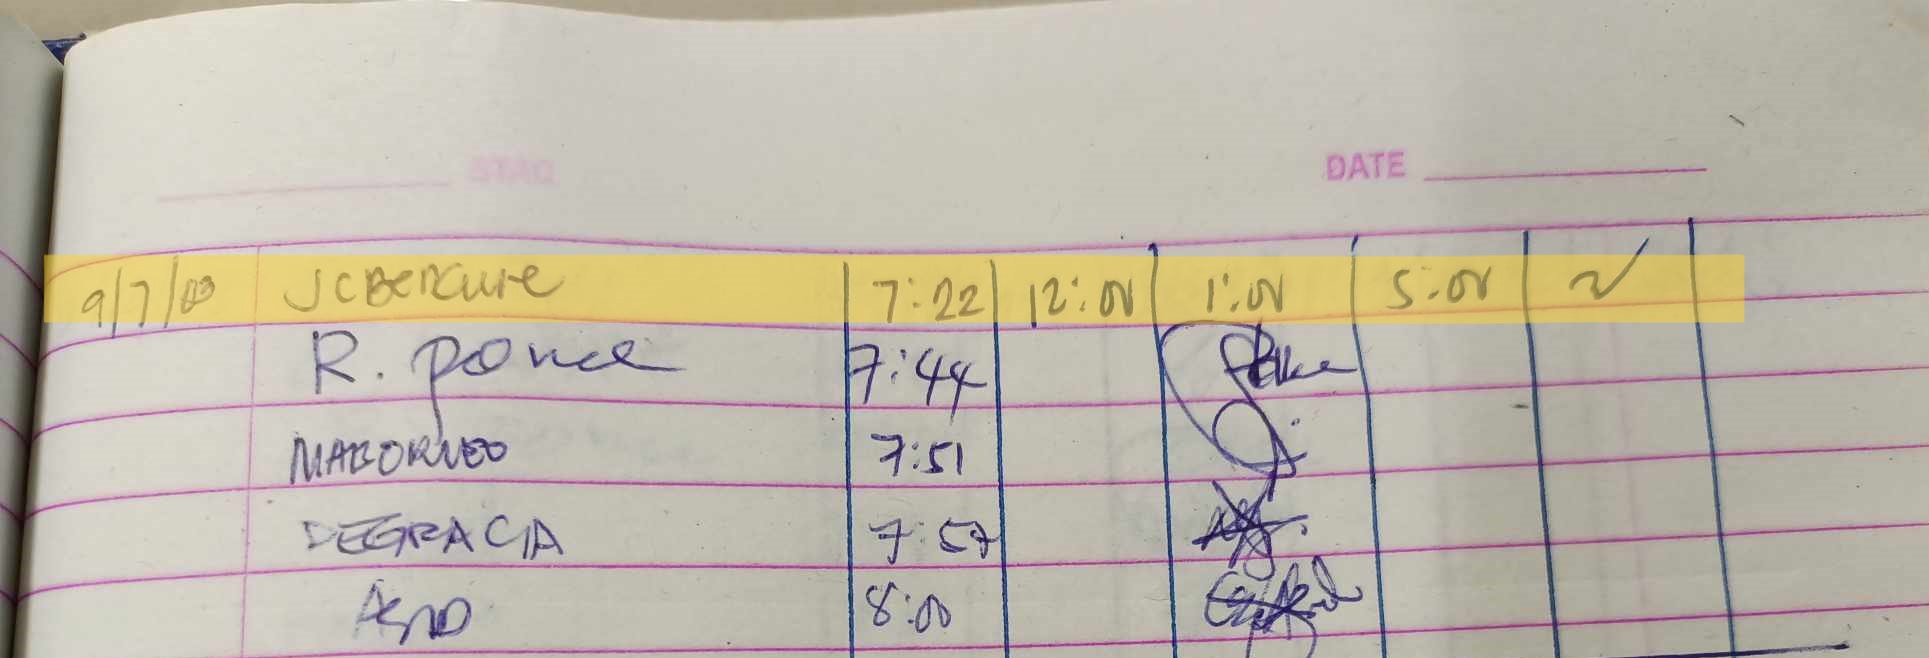 DATE
9/7/23 JCBercure 7:22 12:00 1:00 5:00
R. ponce 7:44
MABORNEO 7:51
DEGRACIA 7:57
8:00